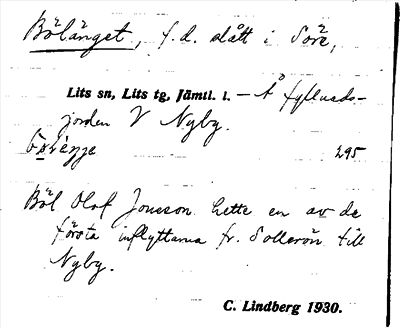 Bölänget, f.d. slått i Söre,
Lits sn, Lits tg, Jämtl. l. – Å fyllnads-
jorden V Nyby.
295
Böl Olof Jonsson hette en av de
första inflyttarna fr. Sollerön till
Nyby.
C. Lindberg 1930.